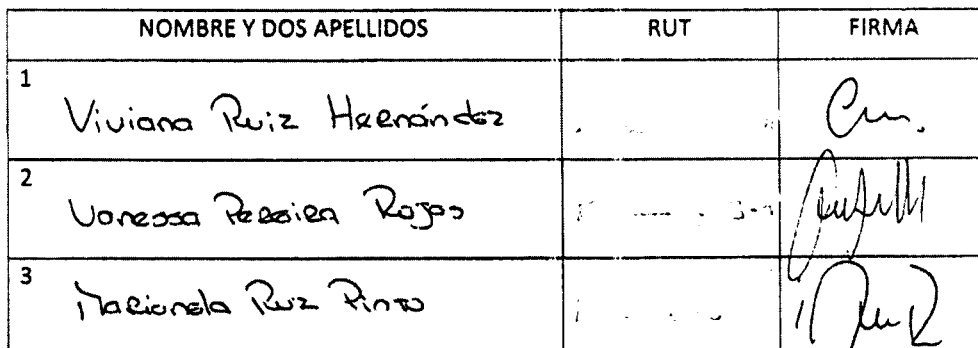 NOMBRE Y DOS APELLIDOS RUT FIRMA
1 Viviana Ruiz Hernández
2 Vanessa Pereira Rojas
3 Marianela Ruiz Pinto